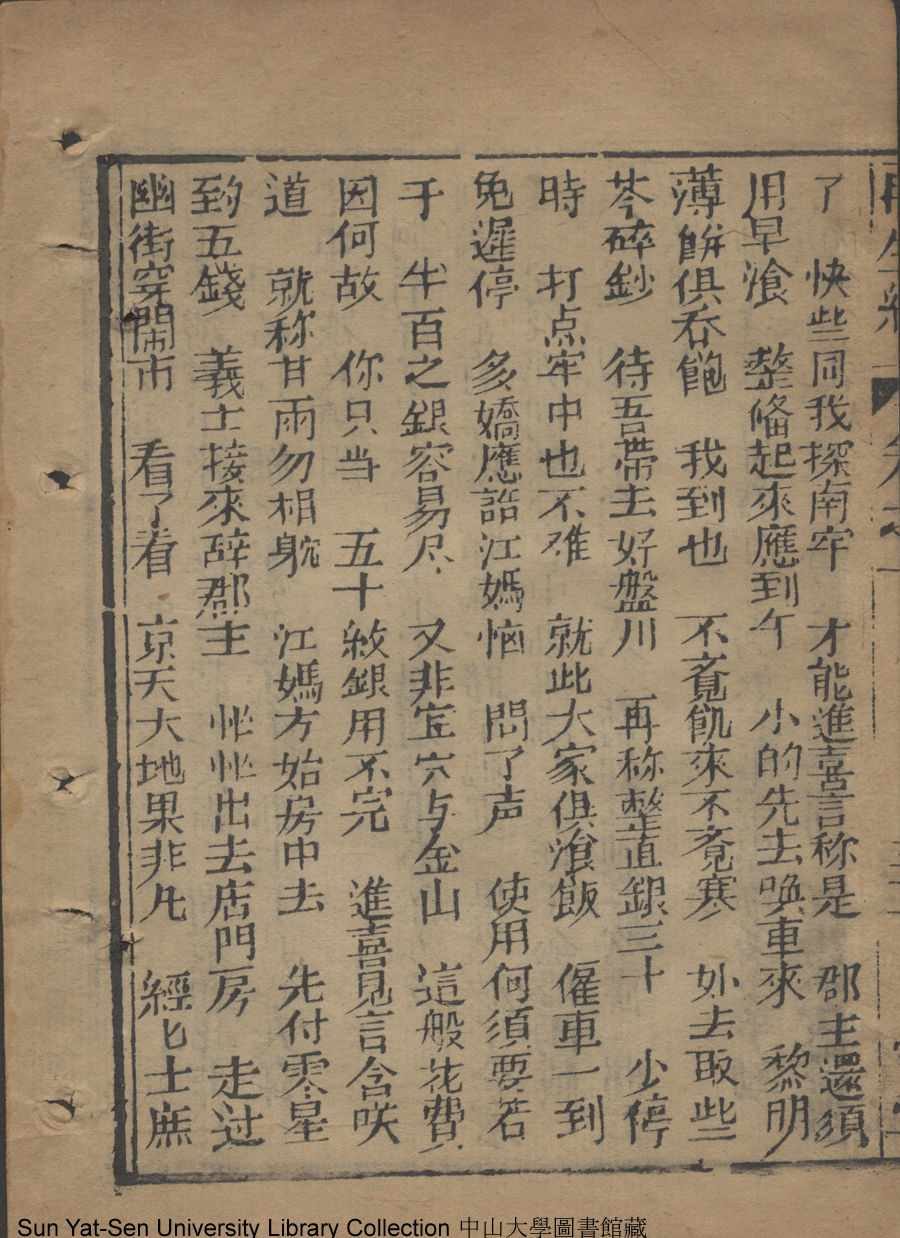 了　快些同我探南牢　才能進喜言称是　郡主還須
用早飡　整俻起來應到午　小的先去喚車來　黎明
薄餅俱吞飽　我到也　不覔飢來不覔寒　妳去取些
芩碎鈔　待吾帶去好盤川　再称整直銀三十　少停
時　打点牢中也不难　就此大家俱飡飯　僱車一到
免遲停　多嬌應諾江媽恼　問了声　使用何須要若
于　半百之銀容易尽　又非宝穴与金山　這般花費
因何故　你只当　五十紋銀用不完　進喜見言含咲
道　就称甘雨勿相躭　江媽方始房中去　先付零星
到約五錢　義士接來辞郡主　忙忙出去店門房　走过
幽街穿閙市　看了看　京天大地果非凢　經匕士庶
Sun Yat-Sen University Library Collection 中山大學圖書館藏